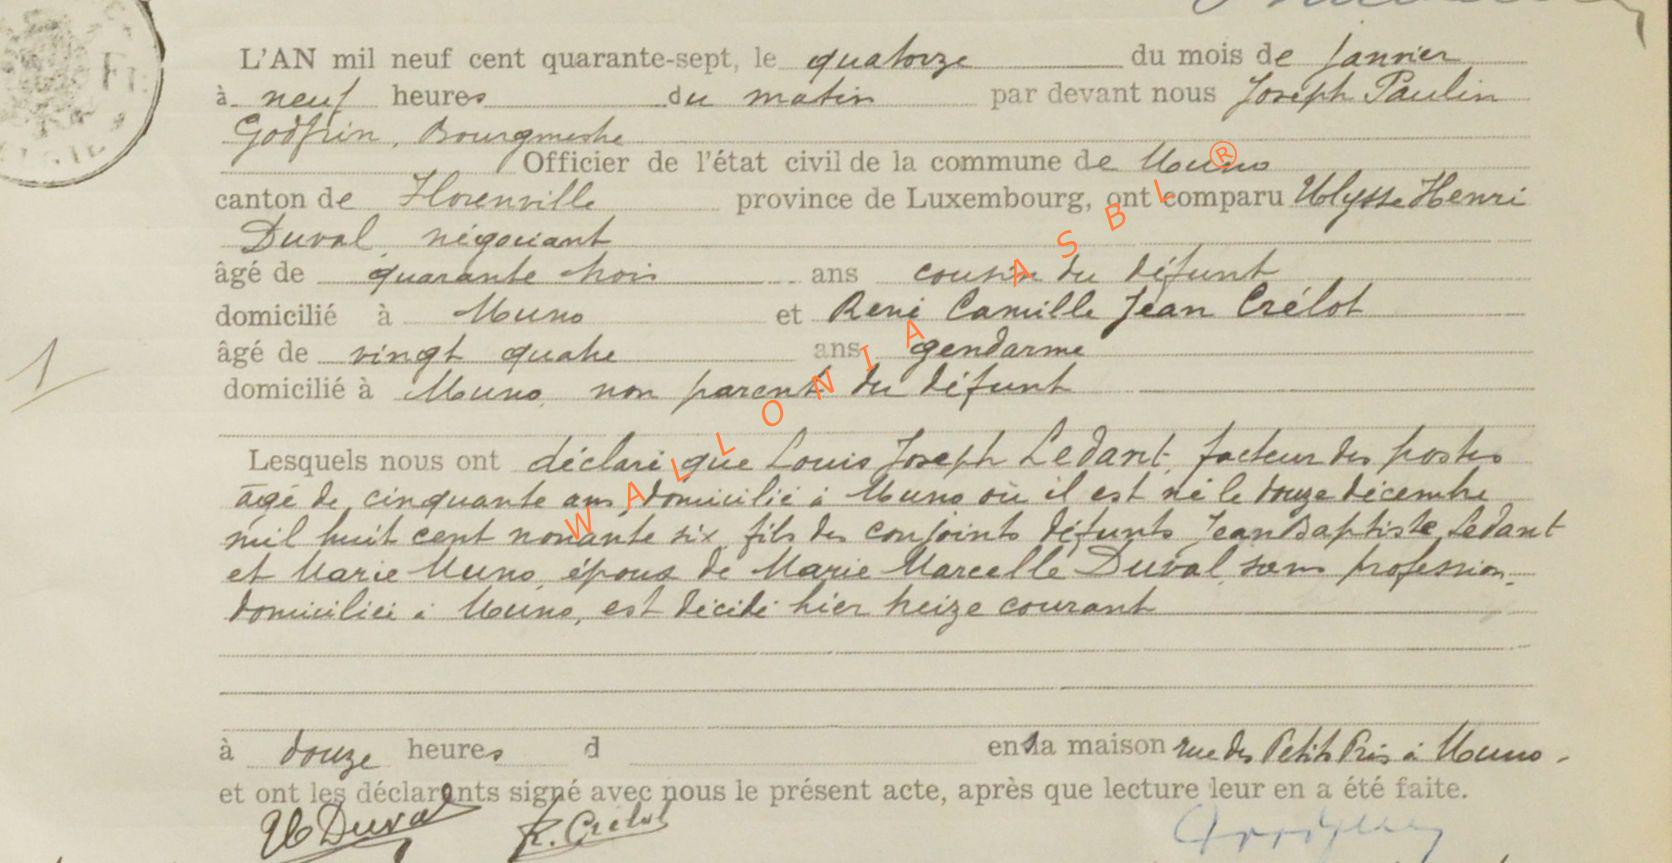 L'AN mil neuf cent quarante-sept, le quatorze du mois de Janvier
à neuf heures du matin par devant nous Joseph Paulin
Godfrin, Bourgmestre
Officier de l'état civil de la commune de Muno
canton de Florenville province de Luxembourg, ont comparu Ulysse Henri
Duval, négociant
âgé de quarante trois ans cousin du défunt
domicilié à Muno et René Camille Jean Crélot
âgé de vingt quatre ans gendarme
domicilié à Muno, non parent du défunt
1
Lesquels nous ont déclaré que Louis Joseph Ledant, facteur des postes
âgé de cinquante ans, domicilié à Muno où il est né le douze décembre
mil huit cent nonante six, fils des conjoints défunts Jean Baptiste Ledant
et Marie Muno, époux de Marie Marcelle Duval, sans profession,
domiciliée à Muno, est décédé hier treize courant
à douze heures d en sa maison rue des Petits Prés à Muno.
et ont les déclarants signé avec nous le présent acte, après que lecture leur en a été faite.
U Duval R. Crélot
WALLONIA ASBL ®
Fr.